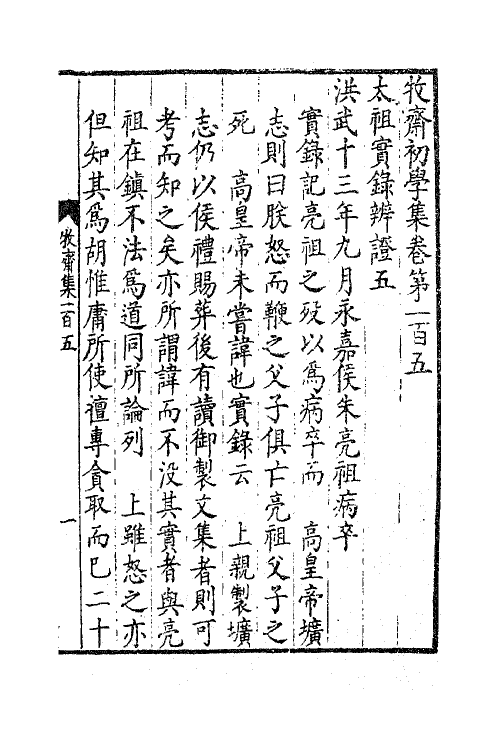 牧齋初學集卷第一百五
太祖實錄辨證五
洪武十三年九月永嘉侯朱亮祖病卒
實錄記亮祖之歿以爲病卒而　高皇帝壙
志則曰朕怒而鞭之父子俱亡亮祖父子之
死　高皇帝未嘗諱也實錄云　上親製壙
志仍以侯禮賜葬後有讀御製文集者則可
考而知之矣亦所謂諱而不没其實者與亮
祖在鎮不法爲道同所論列　上雖怒之亦
但知其爲胡惟庸所使擅專貪取而已二十
牧齋集一百五
一